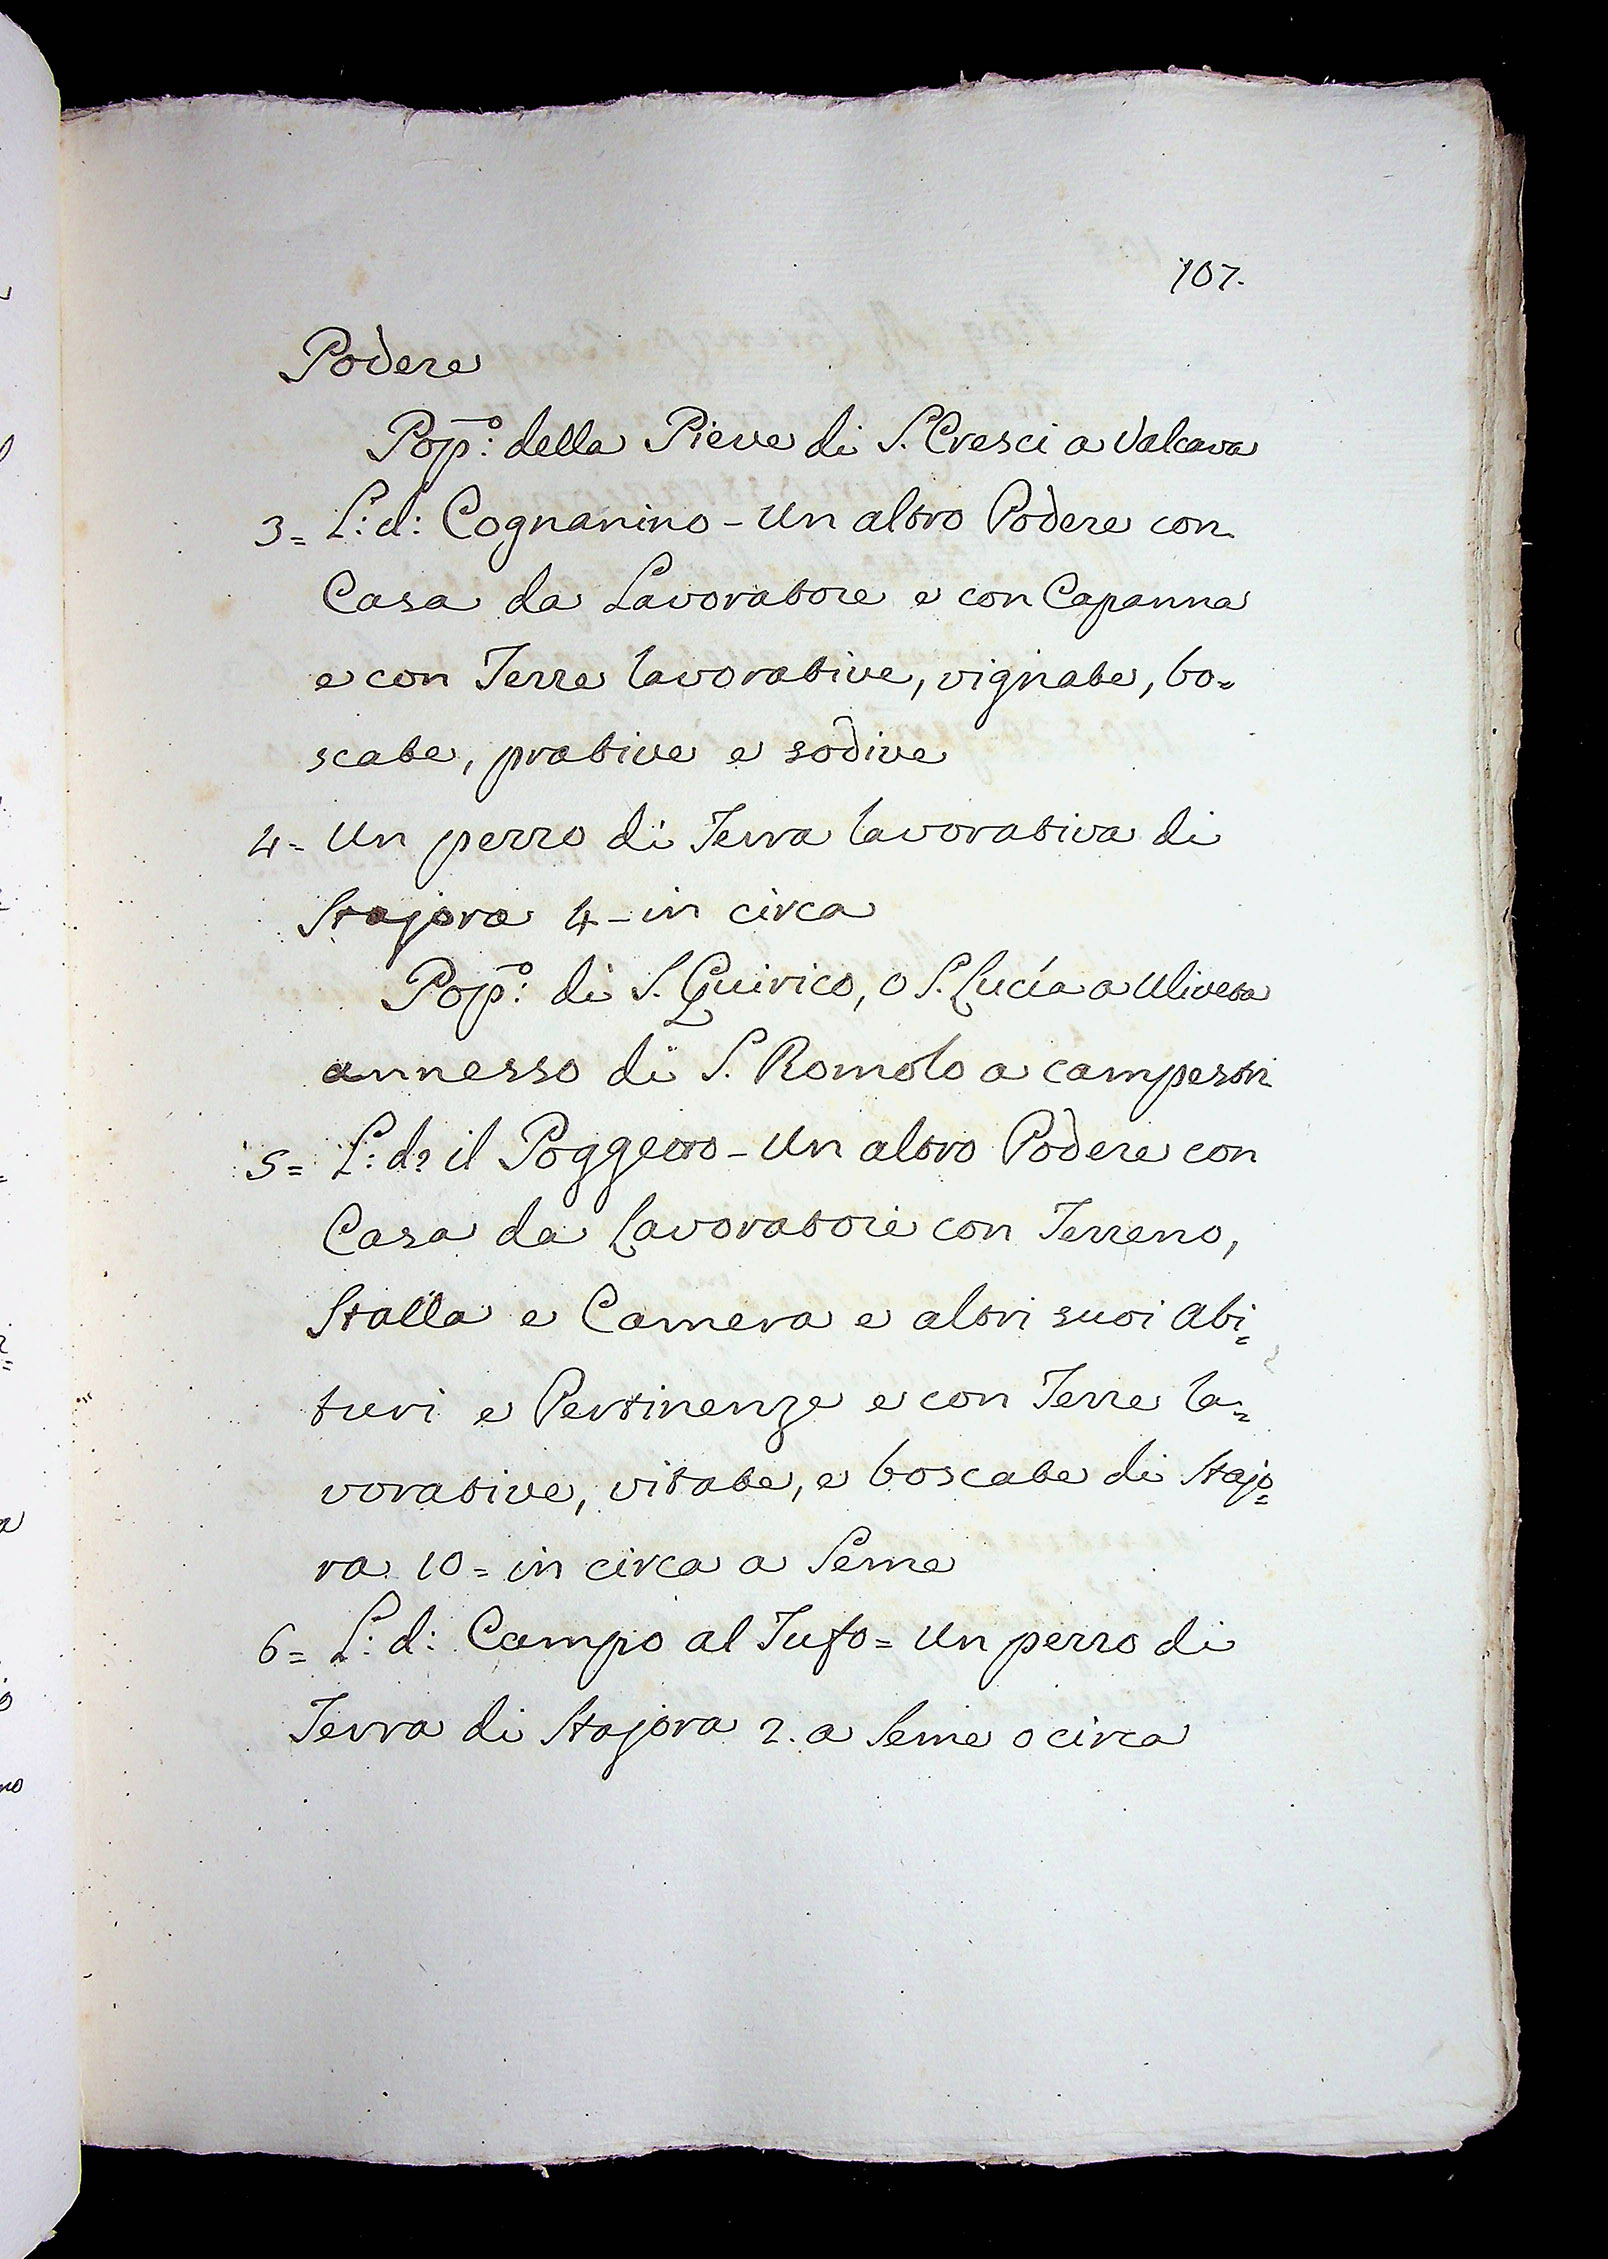 107.
Podere
Pop.o: della Pieve di S. Cresci a Valcava
3= L: d: Cognanino - Un altro Podere con
Casa da Lavoratore e con Capanna
e con Terre lavorative, vignate, bo=
scate, prative e sodive
4= Un pezzo di Terra lavorativa di
Stajora 4 - in circa
Pop.o: di S. Quirico, o S. Lucía a Uliveta
annesso di S. Romolo a campestri
5= L: d: il Poggetto - Un altro Podere con
Casa da Lavoratore con Terreno,
Stalla e Camera e altri suoi Abi=
turi e Pertinenze e con Terre la=
vorative, vitate, e boscate di Stajo=
ra 10= in circa a Seme
6= L: d: Campo al Tufo= Un pezzo di
Terra di Stajora 2. a Seme o circa